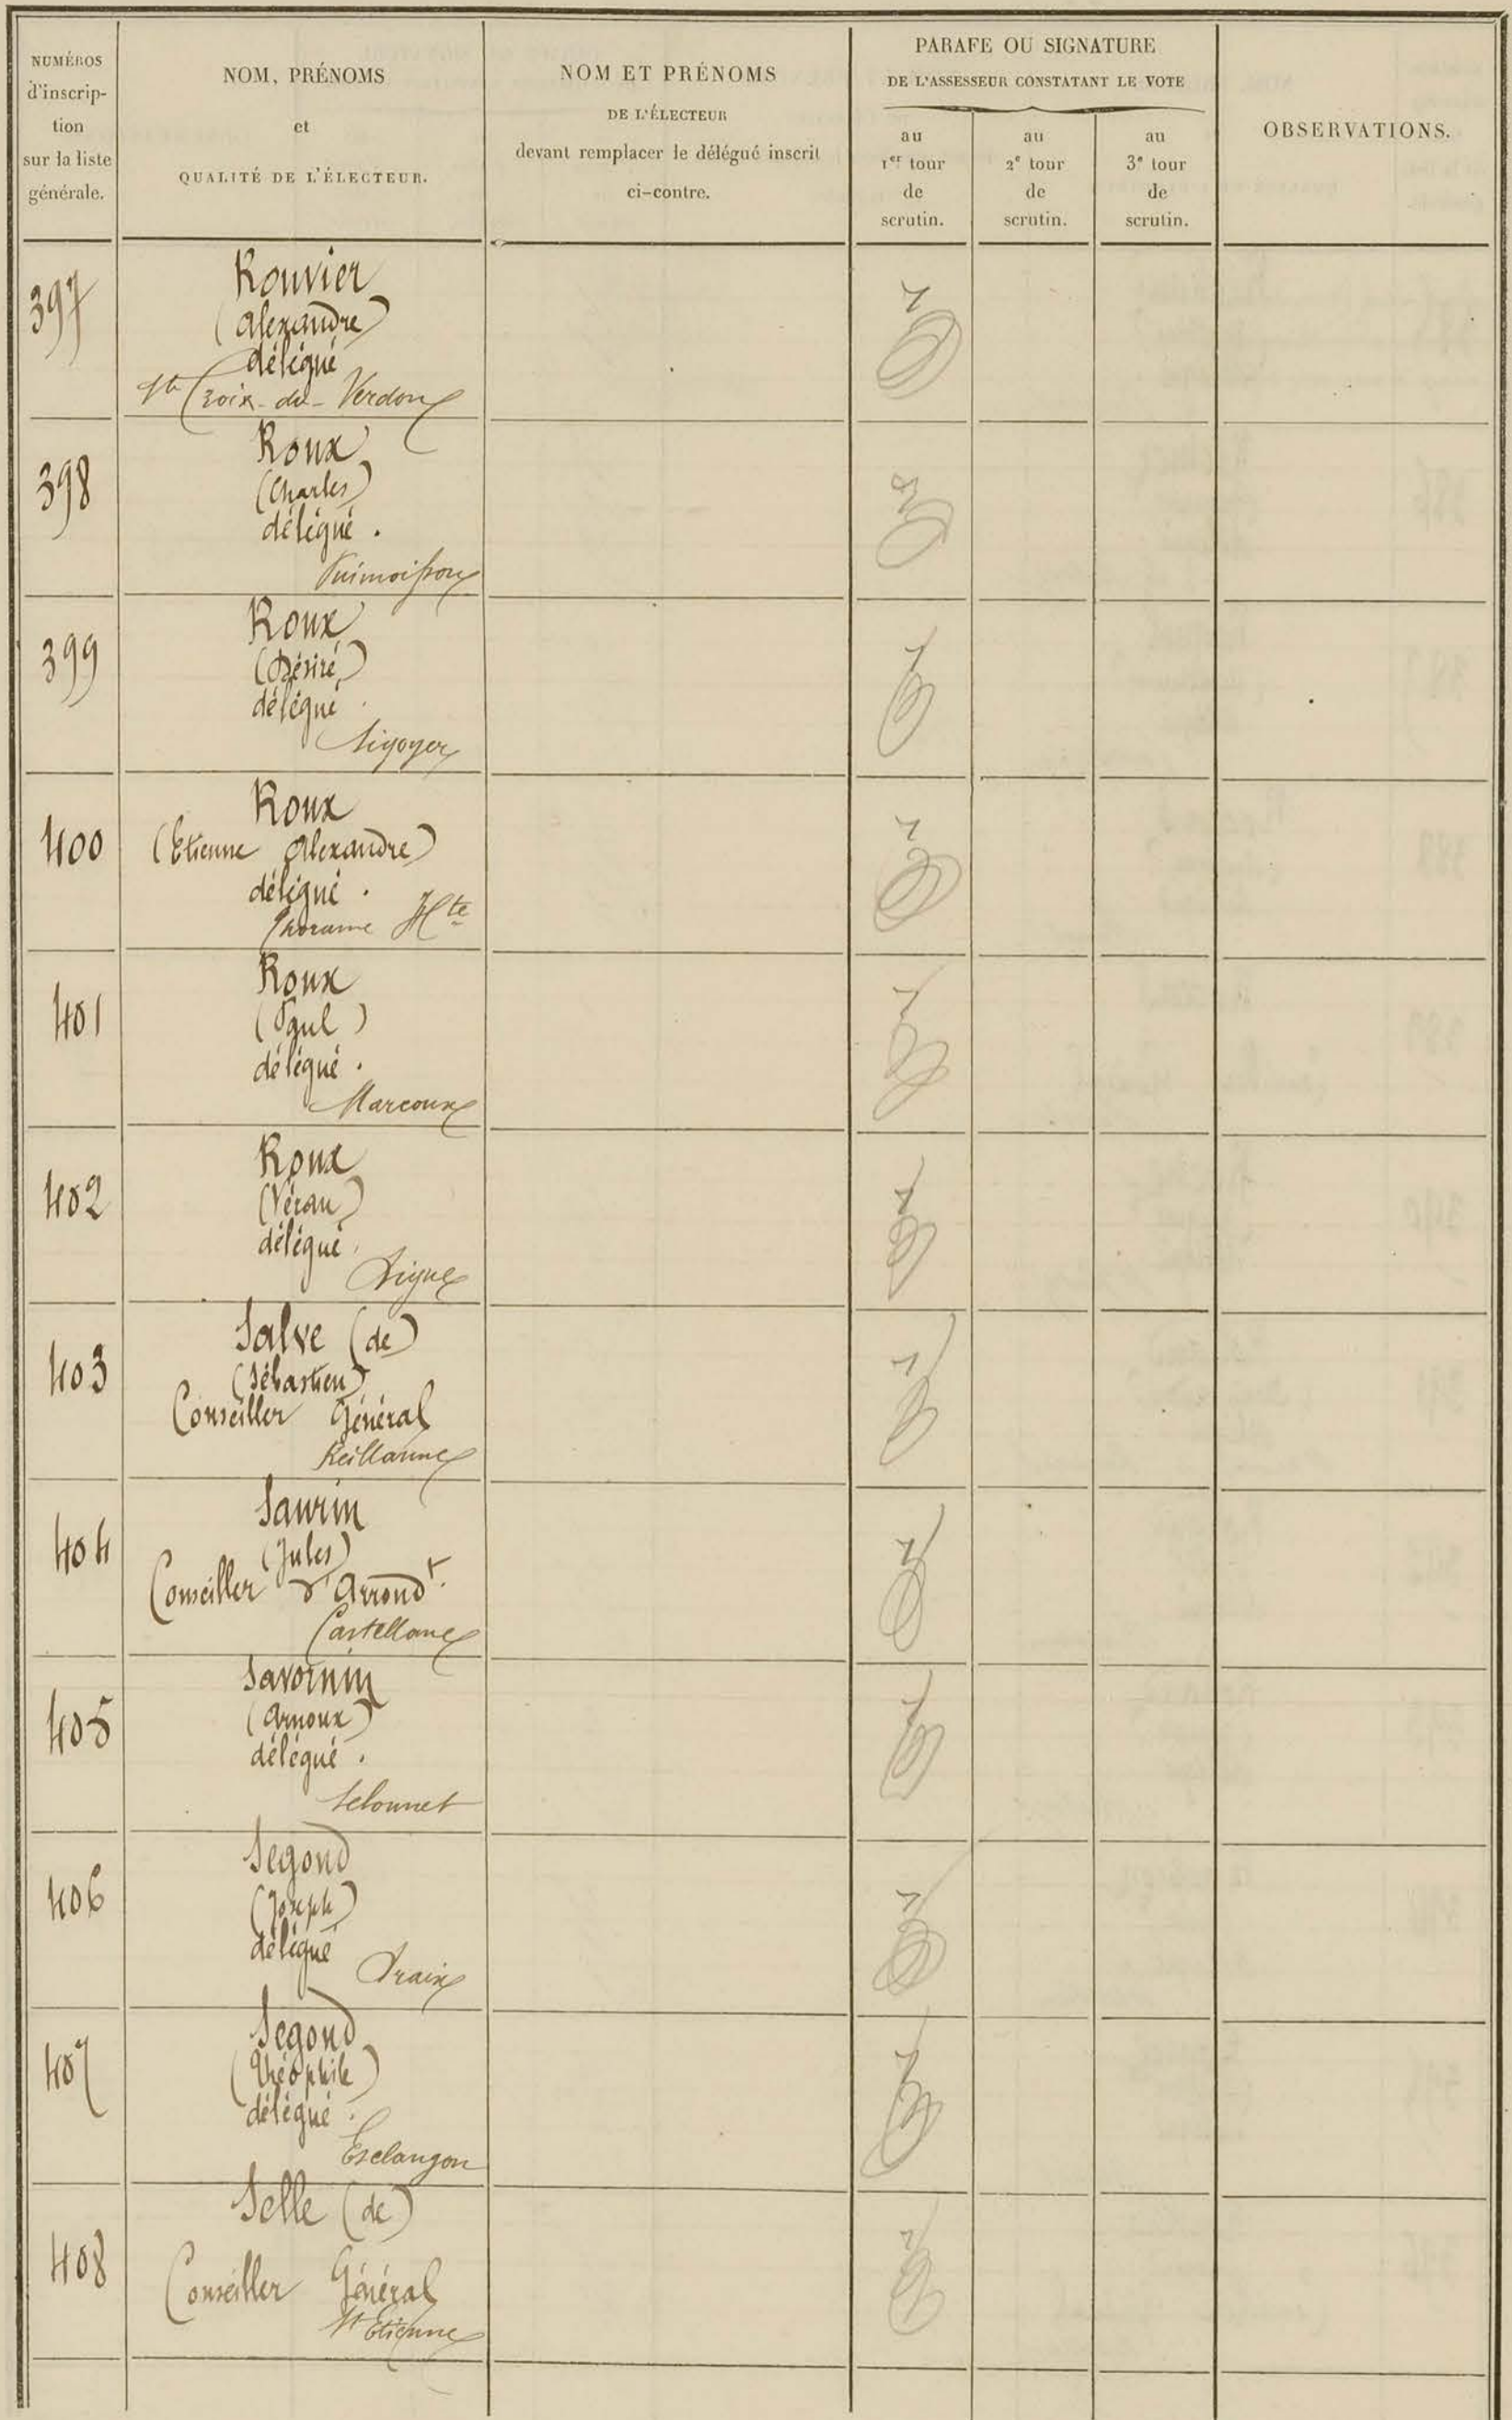 NUMÉROS
d'inscrip-
tion
sur la liste
générale.
NOM, PRÉNOMS
et
QUALITÉ DE L'ÉLECTEUR.
NOM ET PRÉNOMS
DE L'ÉLECTEUR
devant remplacer le délégué inscrit
ci-contre.
PARAFE OU SIGNATURE
DE L'ASSESSEUR CONSTATANT LE VOTE
au
1er tour
de
scrutin.
au
2e tour
de
scrutin.
au
3e tour
de
scrutin.
OBSERVATIONS.
397
Rouvier
(Alexandre)
délégué
Ste Croix-du-Verdon
398
Roux
(Charles)
délégué.
Puimoisson
399
Roux
(Désiré)
délégué.
Sigoyer
400
Roux
(Etienne Alexandre)
délégué.
Thorame Hte
401
Roux
(Paul)
délégué.
Marcoux
402
Roux
(Véran)
délégué.
Digne
403
Salve (de)
(Sébastien)
Conseiller Général
Reillanne
404
Saurin
(Jules)
Conseiller d'Arrondt.
Castellane
405
Savornin
(Arnoux)
délégué.
Selonnet
406
Segond
(Joseph)
délégué
Draix
407
Segond
(Théophile)
délégué.
Esclangon
408
Selle (de)
Conseiller Général
St Etienne